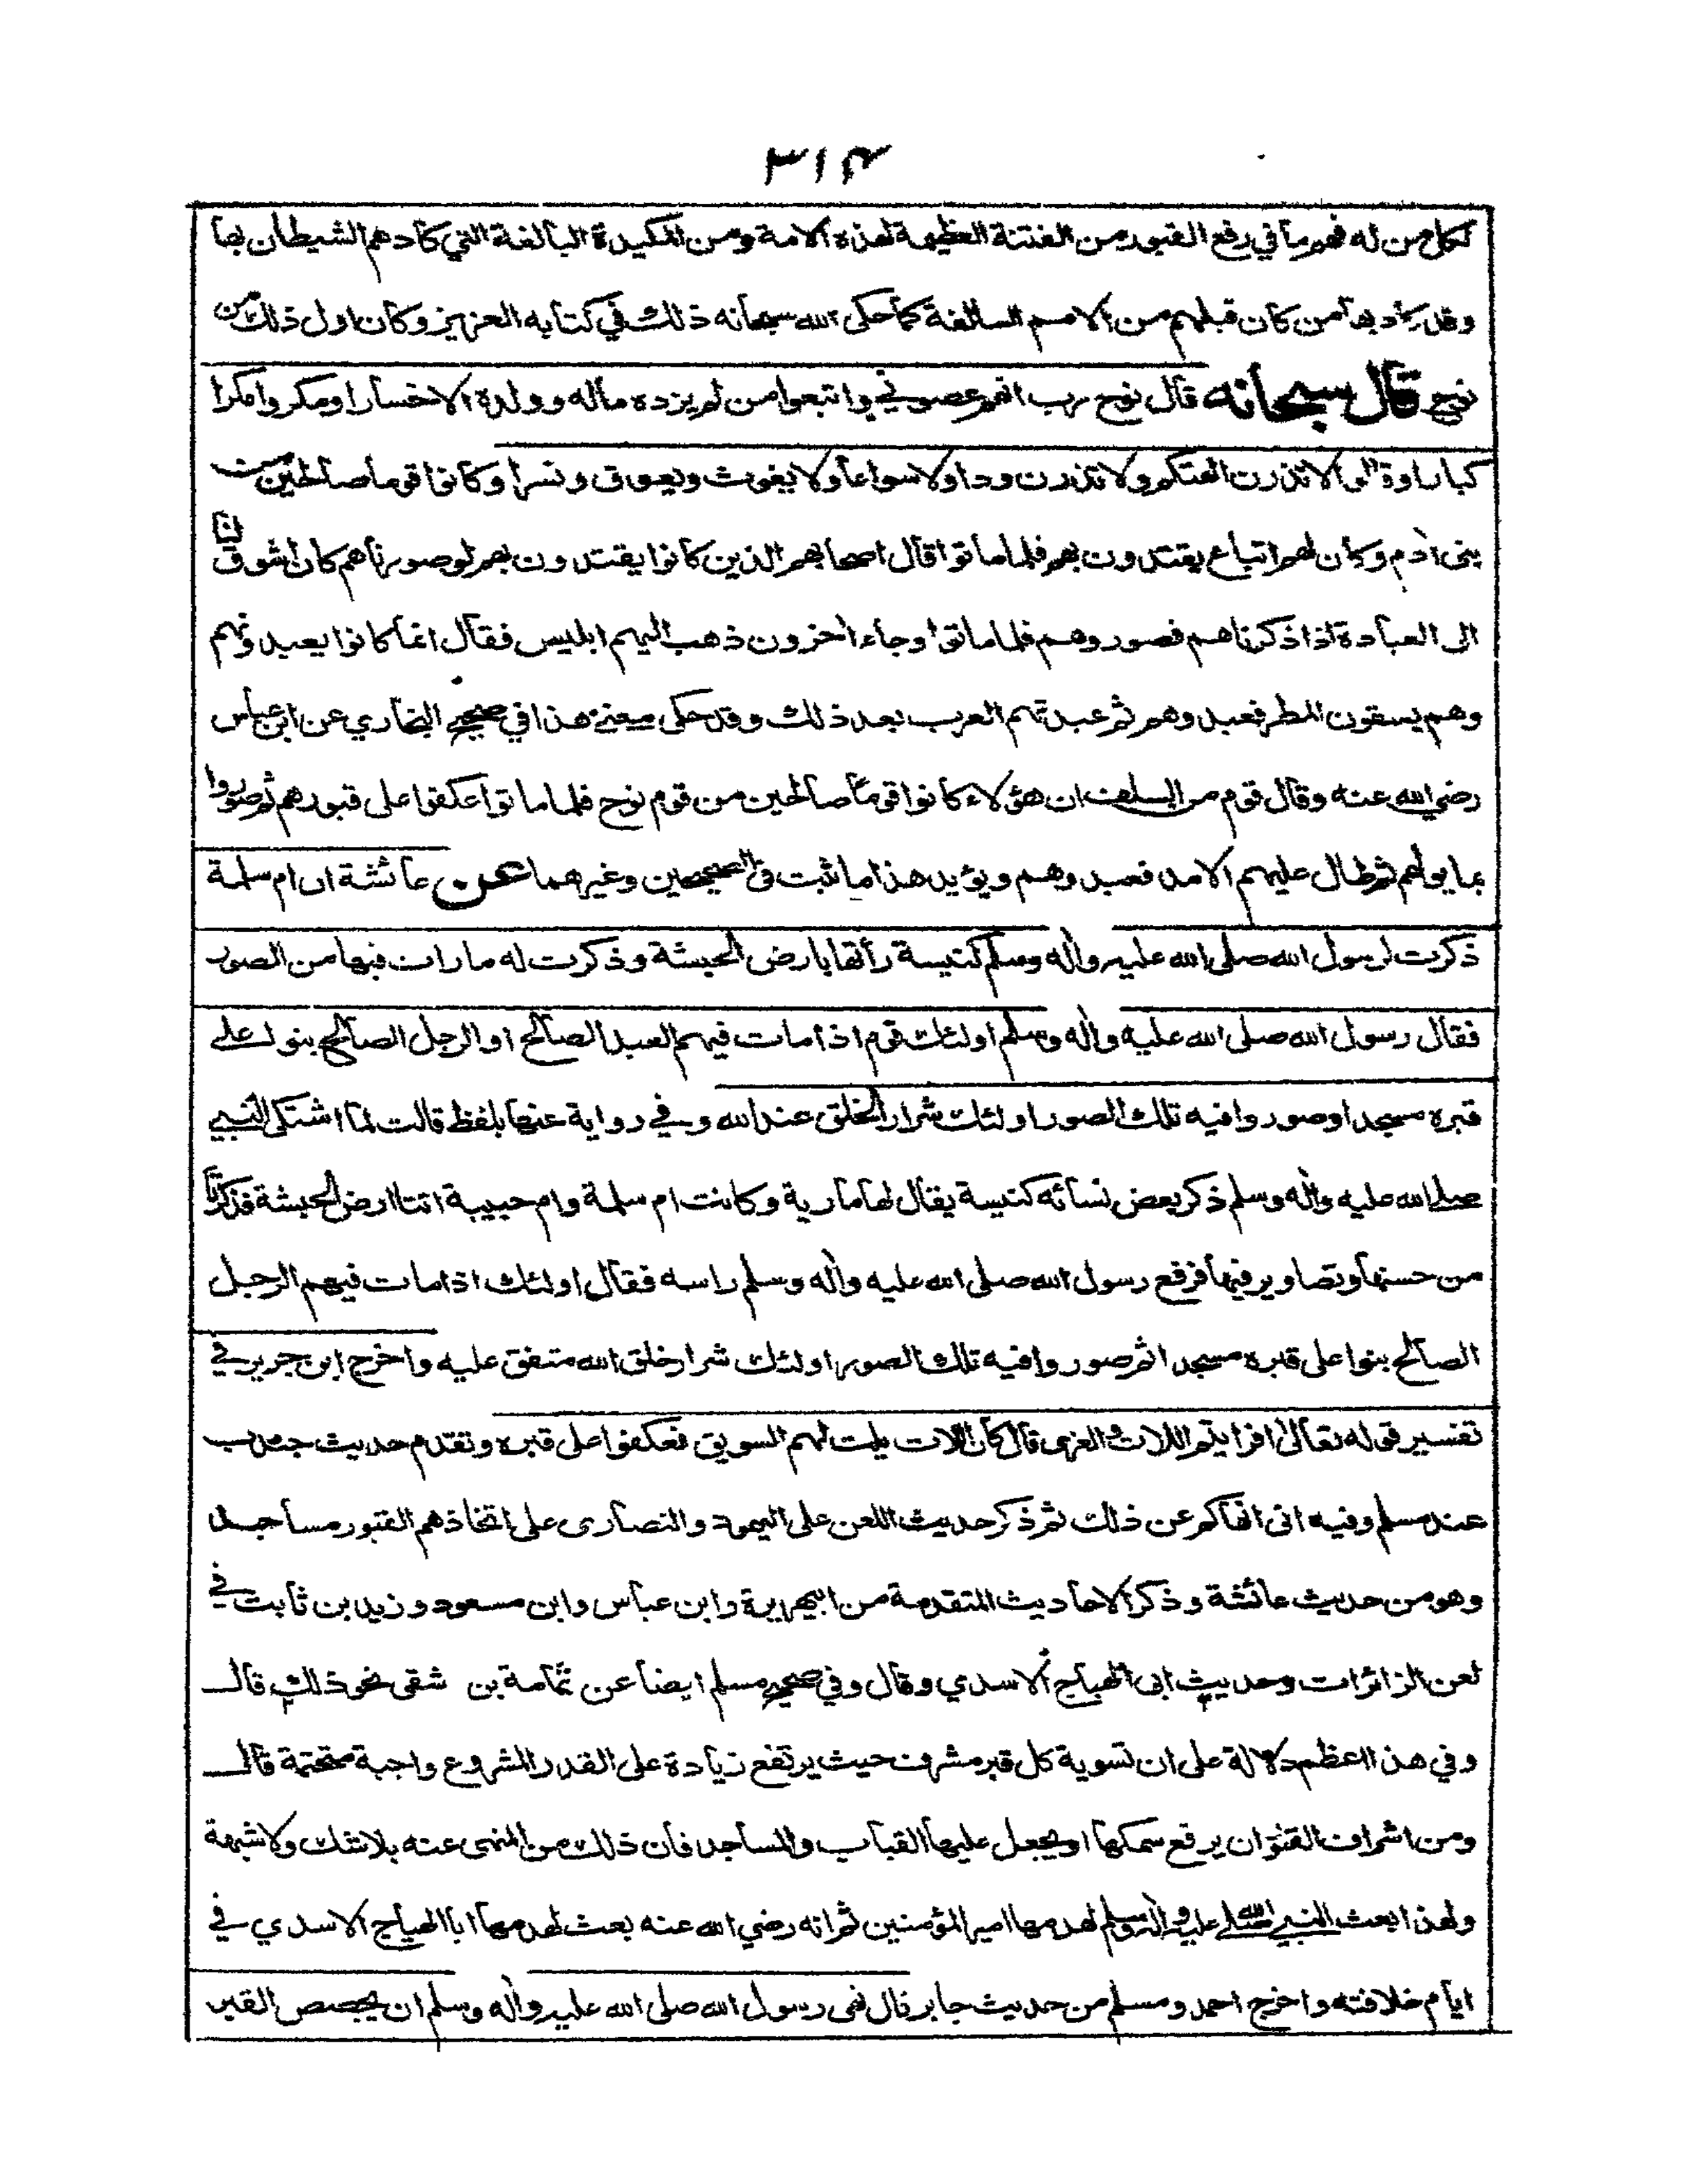 ٣١٤
لكل من له فهم ما في رفع القبور من الفتنة العظيمة لهذه الامة ومن المكيدة البالغة التي كادهم الشيطان بها
وقد كاد بها من كان قبلهم من الامم السالفة كما حكى الله سبحانه ذلك في كتابه العزيز وكان اول ذلك من
نوح قال سبحانه قال نوح رب انهم عصوني واتبعوا من لم يزده ماله وولده الا خسارا ومكروا مكرا
كبارا وقالوا لا تذرن الهتكم ولا تذرن ودا ولا سواعا ولا يغوث ويعوق ونسرا وكانوا قوما صالحين من
بنى ادم وكان لهم اتباع يقتدون بهم فلما ماتوا قال اصحابهم الذين كانوا يقتدون بهم لو صورناهم كان اشوق لنا
الى العبادة اذا ذكرناهم فصوروهم فلما ماتوا وجاء اخرون ذهب اليهم ابليس فقال انما كانوا يعبدونهم
وهم يسقون المطر فعبدوهم ثم عبدتهم العرب بعد ذلك وقد حكى معنى هذا في صحيح البخاري عن ابن عباس
رضي الله عنه وقال قوم من السلف ان هؤلاء كانوا قوما صالحين من قوم نوح فلما ماتوا عكفوا على قبورهم ثم صوروا
تماثيلهم ثم طال عليهم الامد فعبدوهم ويؤيد هذا ما ثبت في الصحيحين وغيرهما عن عائشة ان ام سلمة
ذكرت لرسول الله صلى الله عليه واله وسلم كنيسة رأتها بارض الحبشة وذكرت له ما رات فيها من الصور
فقال رسول الله صلى الله عليه واله وسلم اولئك قوم اذا مات فيهم العبد الصالح او الرجل الصالح بنوا على
قبره مسجدا وصوروا فيه تلك الصور اولئك شرار الخلق عند الله وفي رواية عنها بلفظ قالت لما اشتكى النبي
صلى الله عليه واله وسلم ذكر بعض نسائه كنيسة يقال لها مارية وكانت ام سلمة وام حبيبة اتتا ارض الحبشة فذكرتا
من حسنها وتصاوير فيها فرفع رسول الله صلى الله عليه واله وسلم راسه فقال اولئك اذا مات فيهم الرجل
الصالح بنوا على قبره مسجدا ثم صوروا فيه تلك الصور اولئك شرار خلق الله متفق عليه واخرج ابن جرير في
تفسير قوله تعالى افرايتم اللات والعزى قال كان اللات يلت لهم السويق فعكفوا على قبره وتقدم حديث جندب
عند مسلم وفيه انى انهاكم عن ذلك ثم ذكر حديث اللعن على اليهود والنصارى على اتخاذهم القبور مساجد
وهو من حديث عائشة وذكر الاحاديث المتقدمة من ابيهريرة وابن عباس وابن مسعود وزيد بن ثابت في
لعن الزائرات وحديث ابى الهياج الاسدي وقال وفي صحيح مسلم ايضا عن ثمامة بن شفى نحو ذلك قال
وفي هذا اعظم دلالة على ان تسوية كل قبر مشرف حيث يرتفع زيادة على القدر المشروع واجبة متحتمة قال
ومن اشراف القبور ان يرفع سمكها او يجعل عليها القباب والمساجد فان ذلك من المنهى عنه بلا شك ولا شبهة
ولهذا بعث النبي صلى الله عليه واله وسلم لهدمها امير المؤمنين ثم انه رضي الله عنه بعث لهدمها ابا الهياج الاسدي في
ايام خلافته واخرج احمد ومسلم من حديث جابر قال نهى رسول الله صلى الله عليه واله وسلم ان يجصص القبر